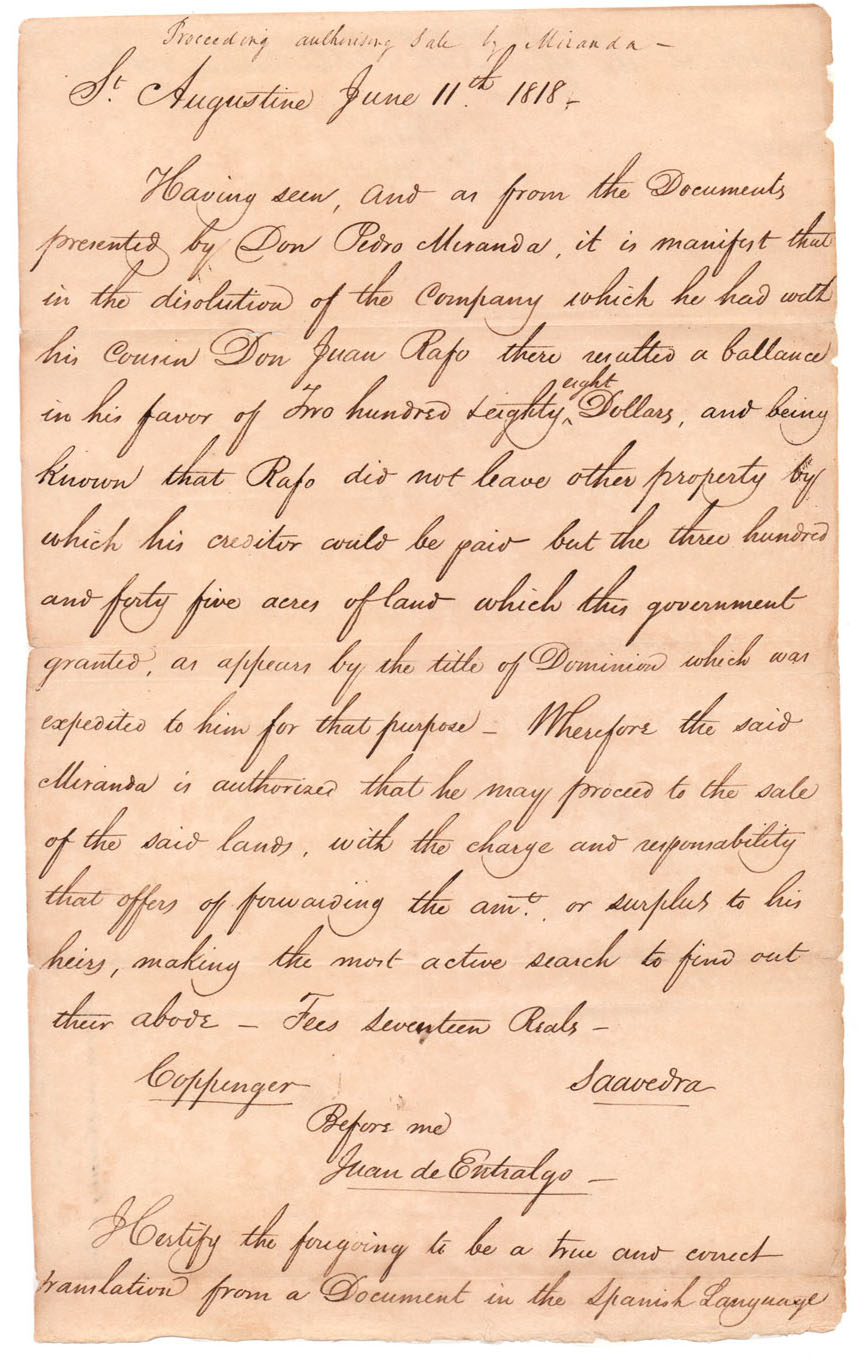 Proceeding authorising Sale by Miranda –
St. Augustine June 11th. 1818 –
Having seen, and as from the Documents
presented by Don Pedro Miranda, it is manifest that
in the disolution of the Company which he had with
his Cousin Don Juan Rafo there resulted a ballance
in his favor of Two hundred & eighty ^eight Dollars, and being
known that Rafo did not leave other property by
which his creditor could be paid but the three hundred
and forty five acres of land which this government
granted, as appears by the title of Dominion which was
expedited to him for that purpose – Wherefore the said
Miranda is authorized that he may proceed to the sale
of the said lands, with the charge and responsability
that offers of forwarding the amt. or surplus to his
heirs, making the most active search to find out
their abode – Fees seventeen Reals –
Coppinger Saavedra
Before me
Juan de Entralgo –
I Certify the foregoing to be a true and correct
translation from a Document in the Spanish Language